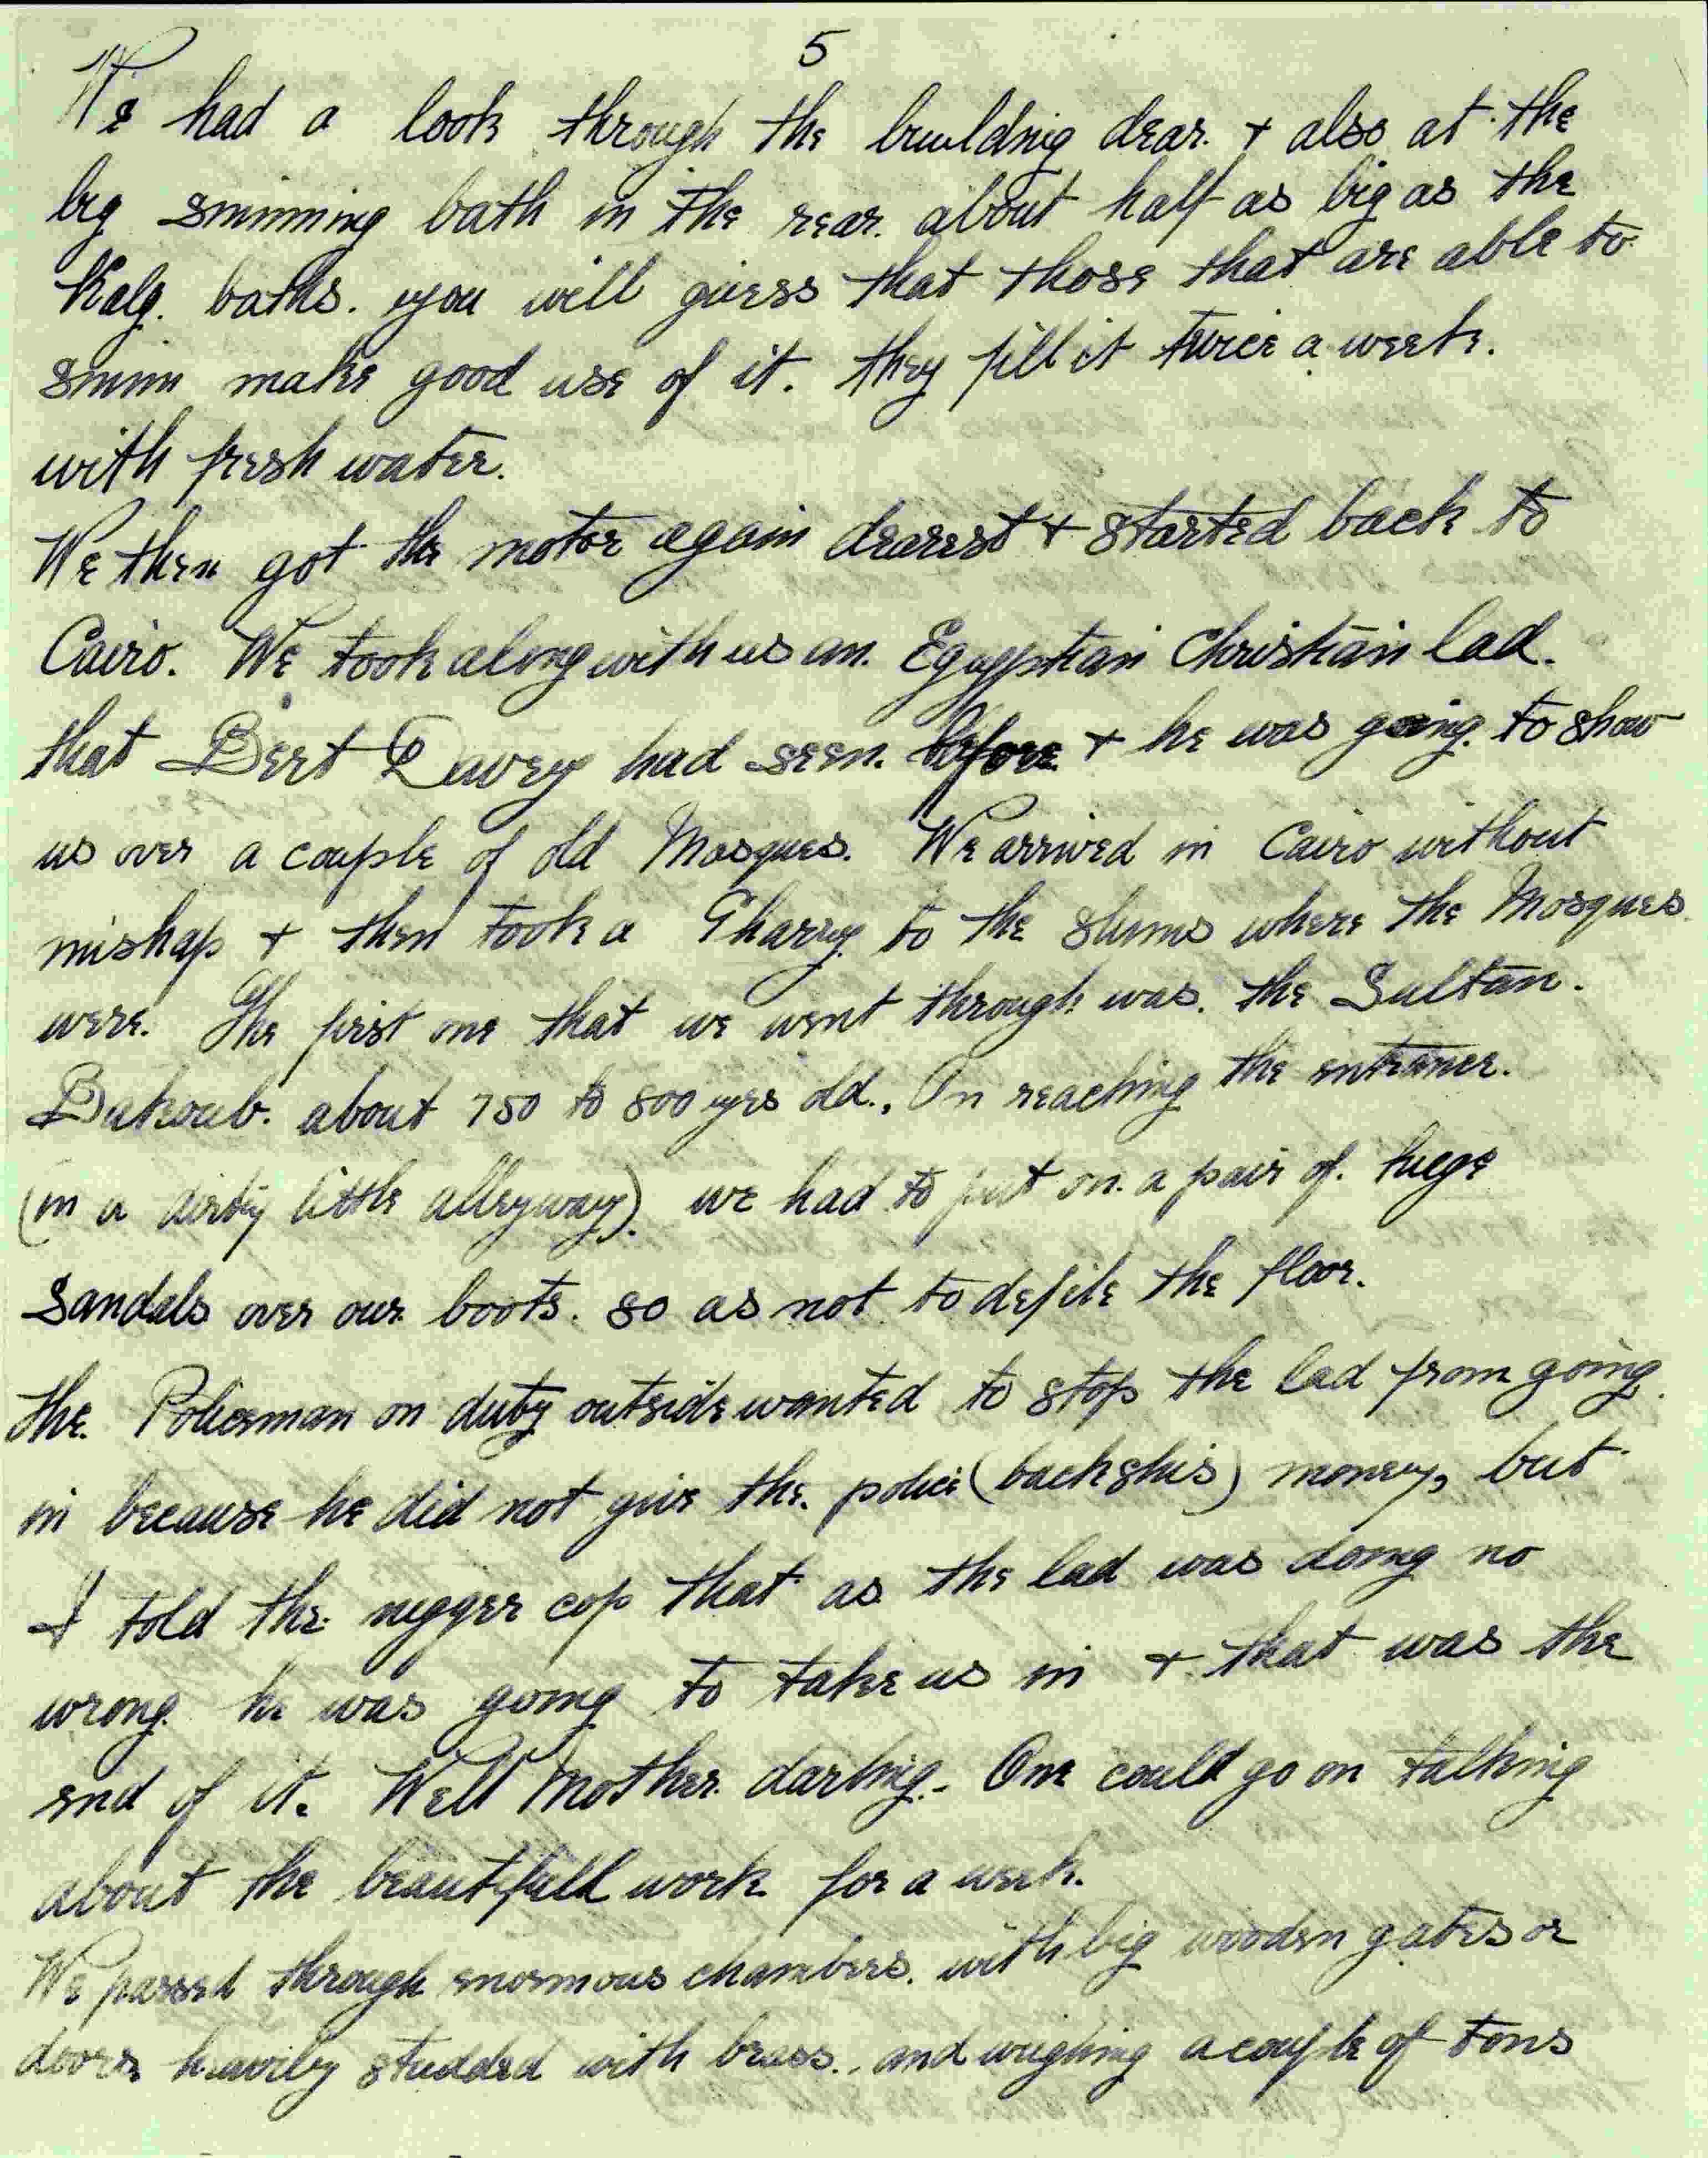 5
We had a look through the buulding dear. + also at the
big swimming bath in the rear. about half as big as the
Kalg. baths. you will guess that those that are able to
swim make good use of it. they fill it twice a week.
with fresh water.
We then got the motor again dearest + started back to
Cairo. We took along with us an. Egyptian Christian lad.
that Bert Davey had seen. before + he was going. to show
us over a couple of old Mosques. We arrived in Cairo without
mishap + then took a Gharry. to the slums where the Mosques.
were. The first one that we went through was. the Sultan.
Bakoub. about 750 to 800 yrs old., On reaching the entrance.
(in a dirty little alleyway). we had to put on. a pair of. huge
Sandals over our. boots. so as not to defile the floor.
the. Policeman on duty outside wanted to stop the lad from going.
in because he did not give the. police (backshis) money, but
I told the nigger cop that as the lad was doing no
wrong. he was going to take us in + that was the
end of it. Well Mother. darling. One could go on talking
about the beautifull work for a week.
We passed through enormous chambers. with big wooden gates or
doors heavily studded with brass., and weighing a couple of tons